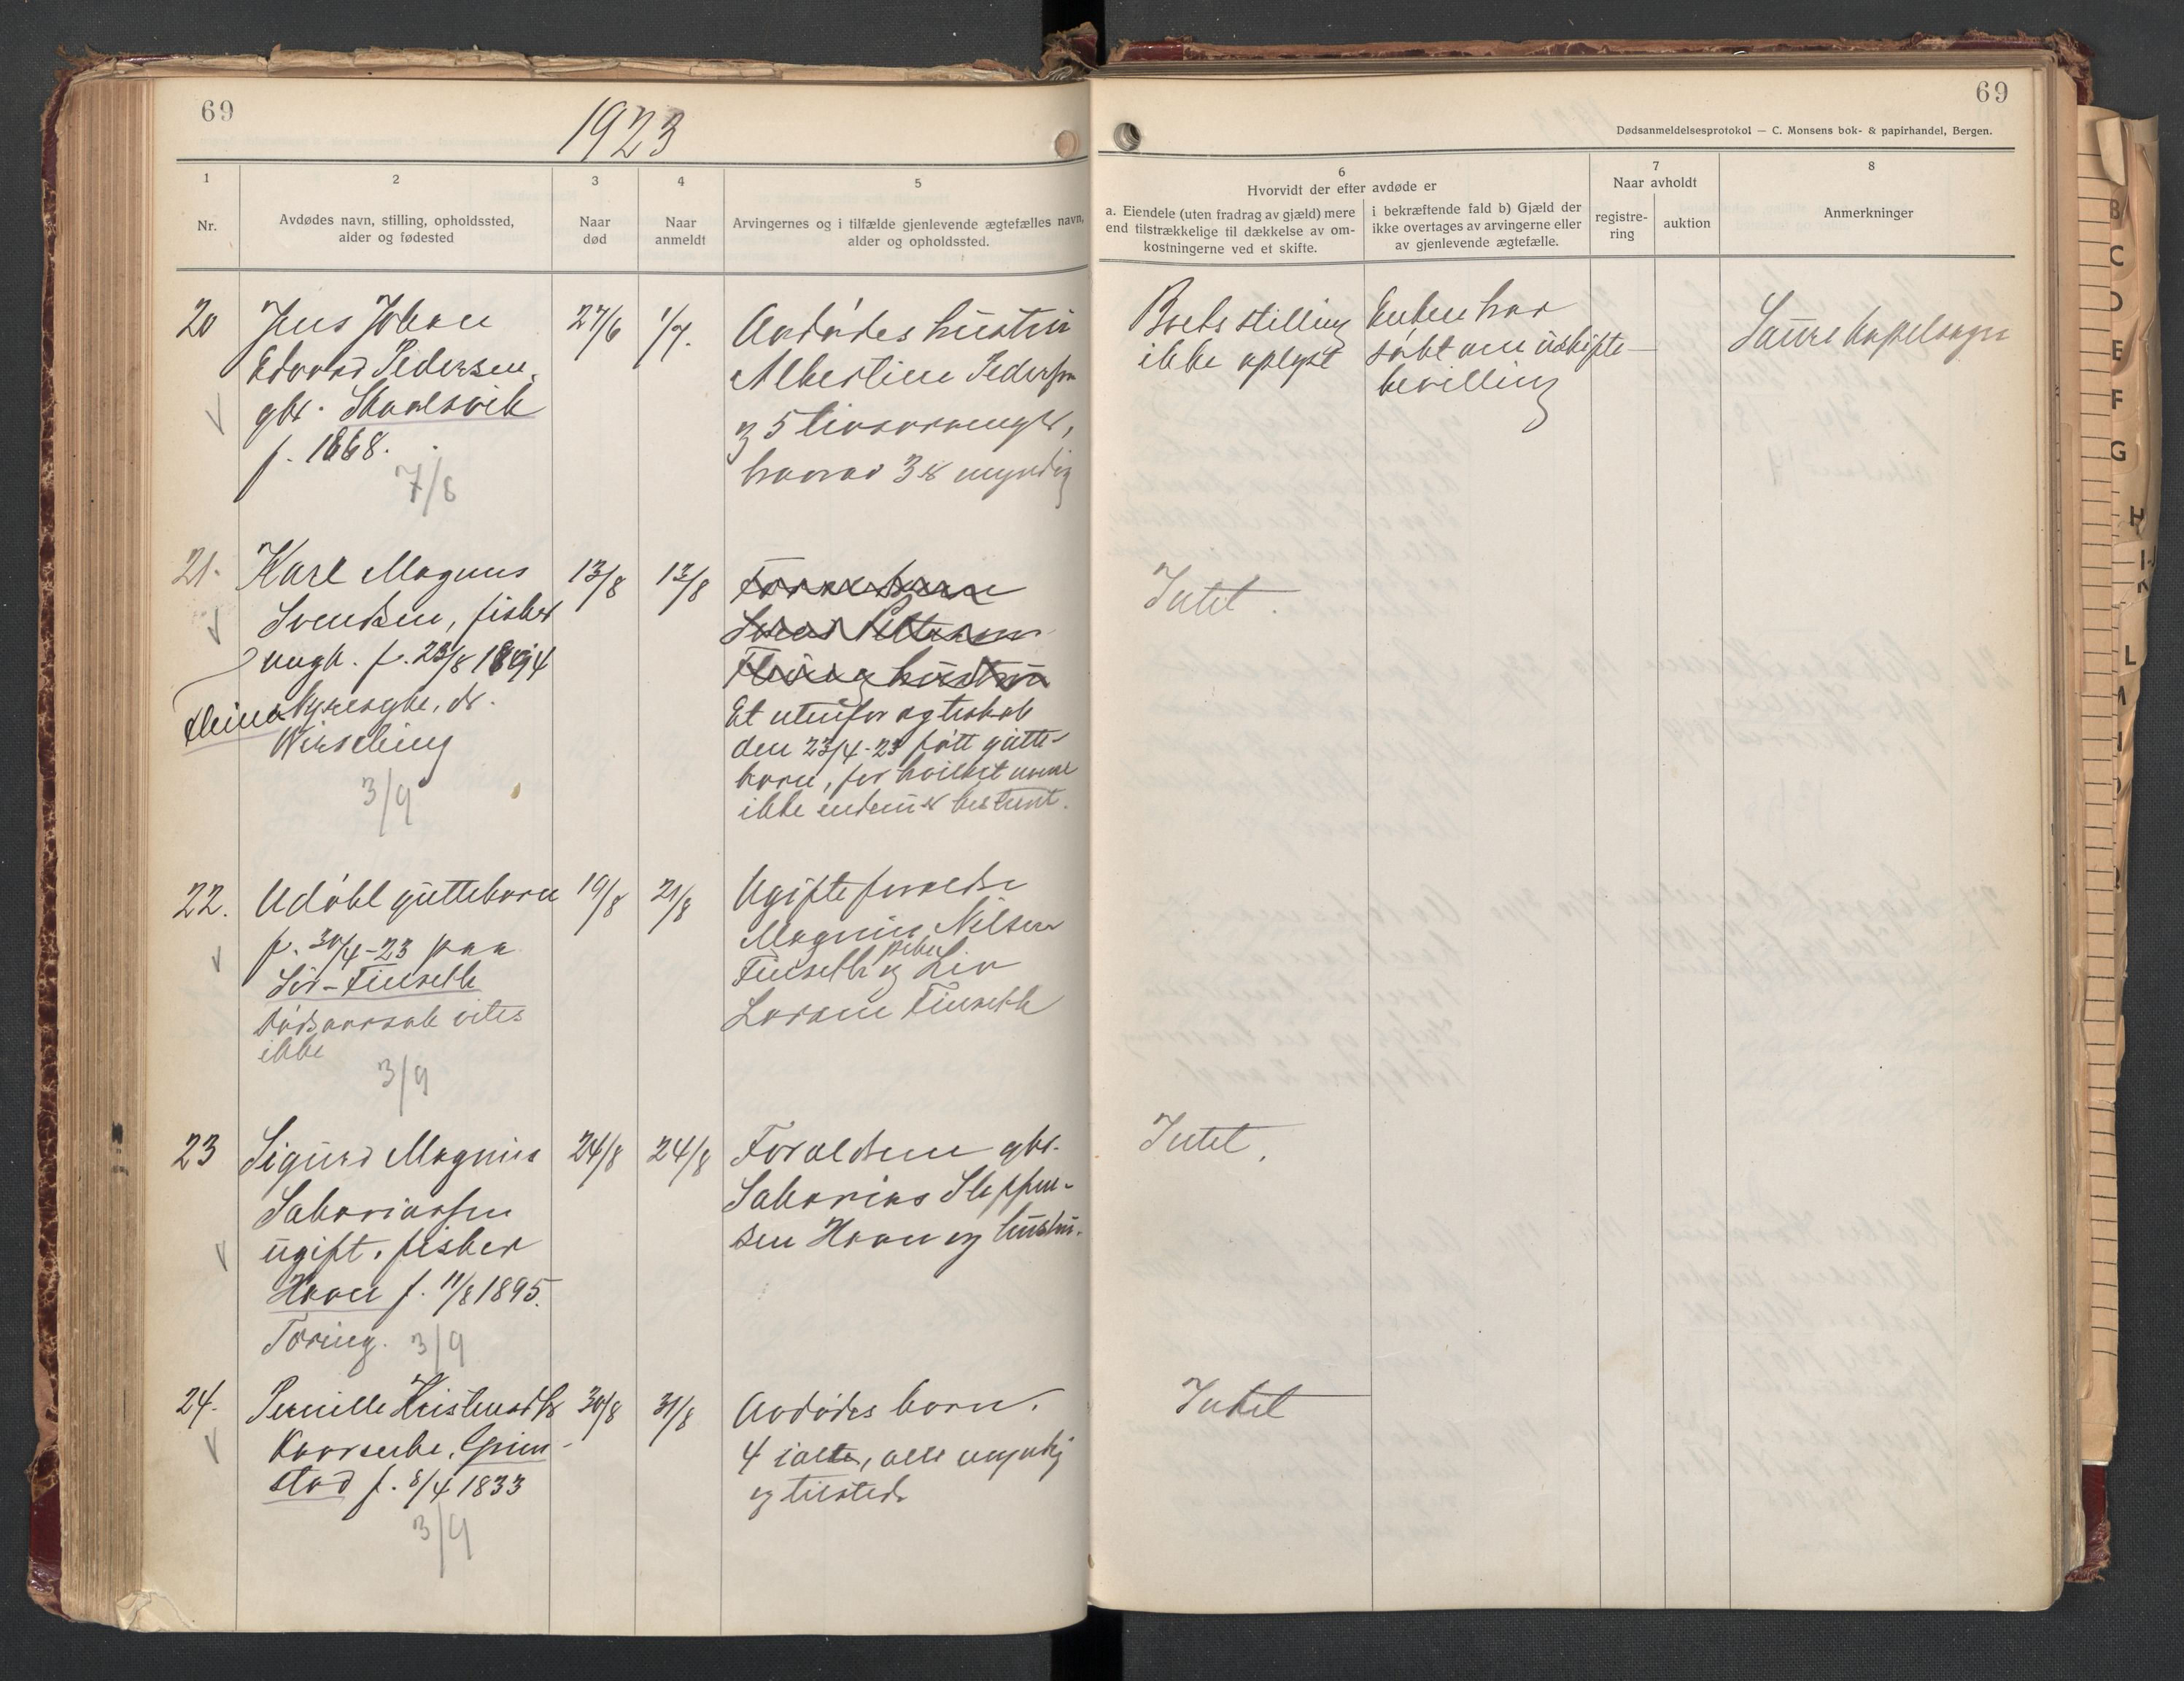 69
1923
1
2
3
4
5
Nr.
Avdødes navn, stilling, opholdssted,
alder og fødested
Naar
død
Naar
anmeldt
Arvingernes og i tilfælde gjenlevende ægtefælles navn,
alder og opholdssted.
20
Jens Johan
Edvard Pedersen,
gbr. Skaalsvik
f. 1868.
7/8
27/6
1/7.
Avdødes hustru
Albertine Pedersen
og 5 livsarvinger,
hvorav 3 er myndig
21.
Karl Magnus
Svendsen, fisker
ungk. f. 23/8 1894
Fleina
ds.
3/9
13/8
13/8
Et utenfor ægteskab
den 23/4-23 født gutte-
barn, for hvilket navn
ikke endnu er bestemt.
22.
Udøbt guttebarn
f. 30/4-23 paa
Sør-Finseth
Dødsaarsak vites
ikke
3/9
19/8
21/8
Ugifte forældre
Magnus Nilsen
Finseth og pike Liv
Lorane Finseth
23
Sigurd Magnus
Sakariassen
ugift. fisker
Havn f. 11/8 1895.
Tæring. 3/9
24/8
24/8
Forældrene gbr.
Sakarias Steffen-
sen Havn og hustru.
24.
Pernille Kristensdtr
Kaarenke, Grim-
stad f. 8/4 1833
3/9
30/8
31/8
Avdødes barn.
4 ialt, alle myndig
og tilsted
69
Dødsanmeldelsesprotokol — C. Monsens bok- & papirhandel, Bergen.
6
Hvorvidt der efter avdøde er
a. Eiendele (uten fradrag av gjæld) mere
end tilstrækkelige til dækkelse av om-
kostningerne ved et skifte.
i bekræftende fald b) Gjæld der
ikke overtages av arvingerne eller
av gjenlevende ægtefælle.
7
Naar avholdt
registre-
ring
auktion
8
Anmerkninger
Boets stilling
ikke oplyst
Enken har
søkt om uskifte-
bevilling
Saura kapelsogn
Intet.
Intet.
Intet
B
C
D
E
F
G
H
L